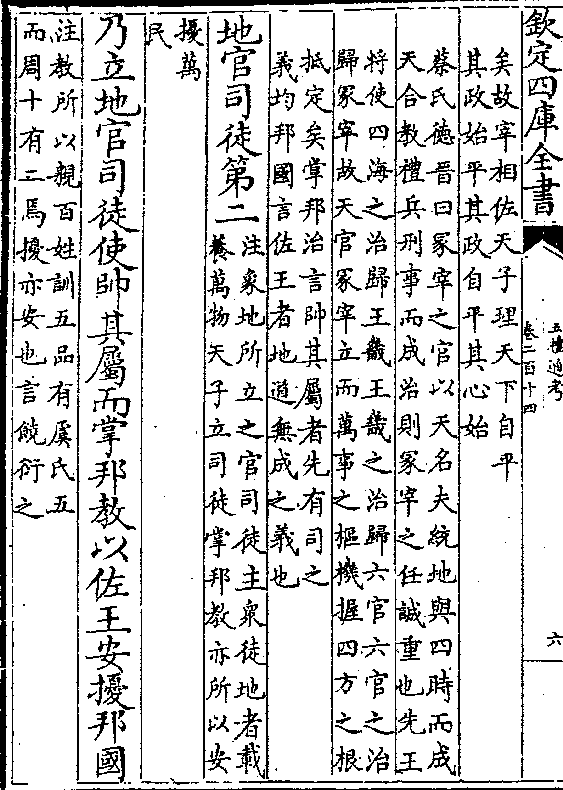 欽定四庫全書
五禮通考
卷二百十四
六
矣故宰相佐天子理天下自平
其政始平其政自平其心始
蔡氏德晉曰冢宰之官以天名夫統地與四時而成
天合教禮兵刑事而成治則冢宰之任誠重也先王
將使四海之治歸王畿王畿之治歸六官六官之治
歸冢宰故天官冢宰立而萬事之樞機握四方之根
抵定矣掌邦治言帥其屬者先有司之
義均邦國言佐王者地道無成之義也
地官司徒第二
注象地所立之官司徒主衆徒地者載
養萬物天子立司徒掌邦教亦所以安
擾萬
民
乃立地官司徒使帥其屬而掌邦教以佐王安擾邦國
注教所以親百姓訓五品有虞氏五
而周十有二焉擾亦安也言饒衍之